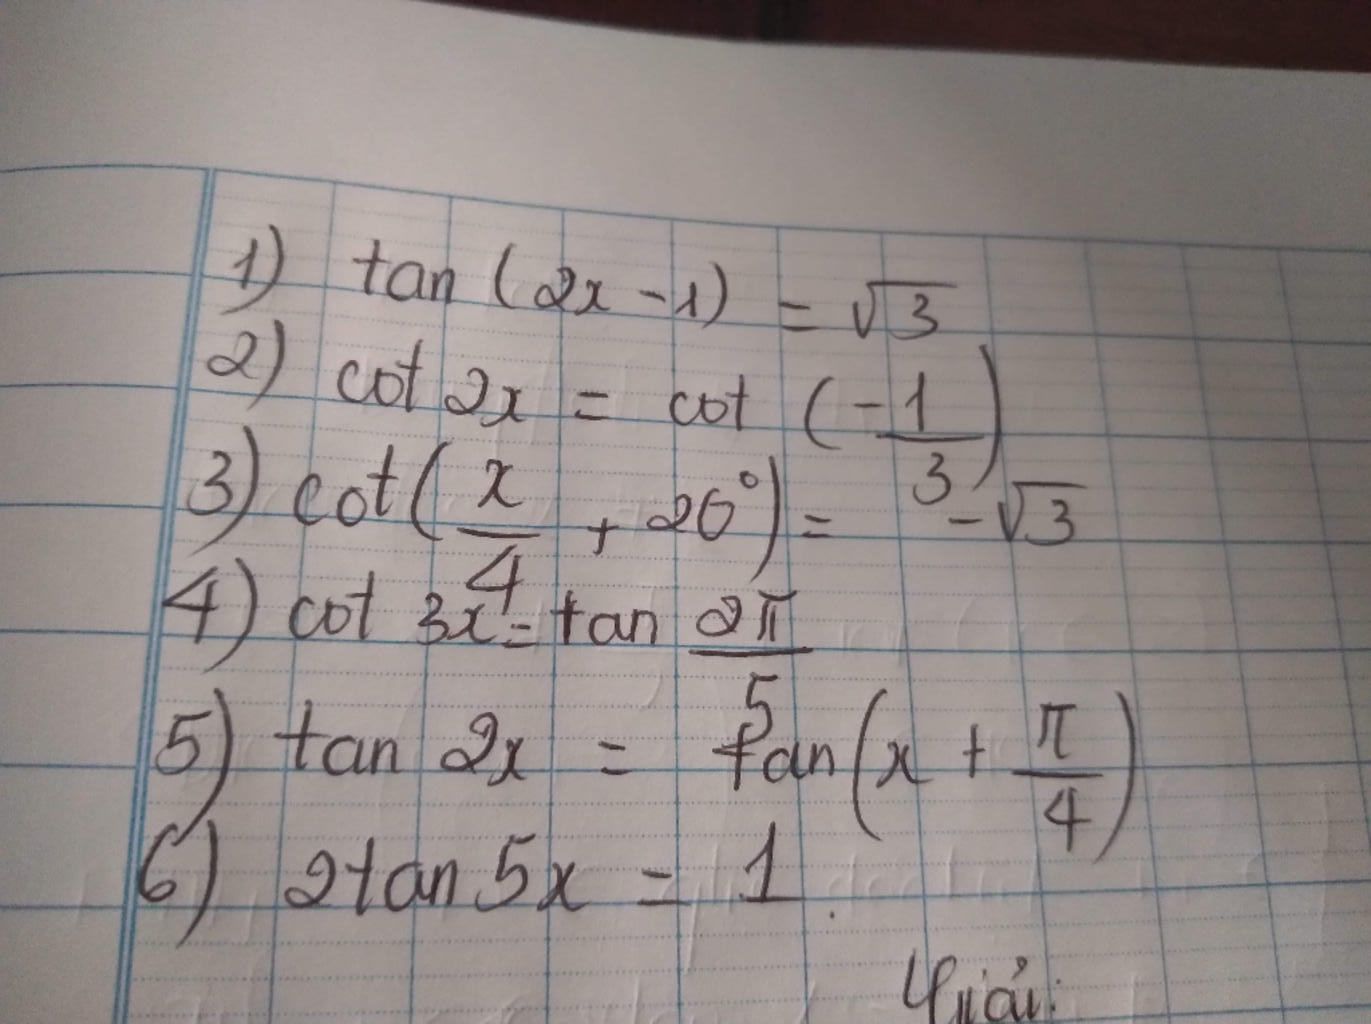 1) tan (2x - 1) = √3
2) cot 2x = cot (-1/3)
3) cot(x/4 + 20°) = -√3
4) cot 3x = tan 2π/5
5) tan 2x = tan(x + π/4)
6) 2tan 5x = 1.
Giải: